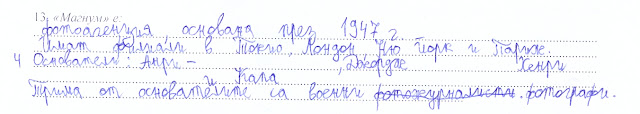 13. «Магнум» е:
фотоагенция, основана през 1947 г.
Имат филиали в Токио, Лондон, Ню Йорк и Париж.
4 Основатели: Анри – , Джордж Хенри
и Капа
Трима от основателите са военни фотожурналисти. фотографи.